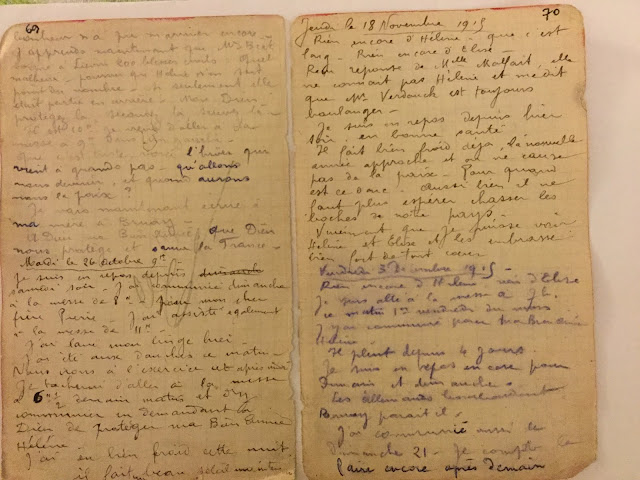 69
bonheur n'a pu m'arriver encore -
J'apprends maintenant que
à Liévin 200 blessés civils. Quel
malheur - pourvu qu'Hélène n'en fait
point du nombre. Si seulement elle
était partie en arrière. Mon Dieu
protégez la secourez la sauvez la -
Il est 10h je viens d'aller à la
messe
que l'hiver qui
vient à grands pas - qu'allons
nous devenir, et quand aurons
nous la paix ?
Je vais maintenant écrire à
ma mère à Bruay -
A Dieu ma Bien Aimée, que Dieu
nous protège et sauve la France -
Mardi le 26 octobre 9h -
Je suis en repos depuis dimanche
samedi soir - J'ai communié dimanche
à la messe de 8h - pour mon cher
frère Pierre. J'ai assisté également
à la messe de 11h -
J'ai lavé mon linge hier -
J'ai été aux Douches ce matin -
Nous irons à l'exercice cet après midi
Je tacherai d'aller à la messe
à 6h 1/2 demain matin et d'y
communier en demandant à
Dieu de protéger ma Bien Aimée
Hélène
J'ai eu bien froid cette nuit.
il fait beau soleil maintenant
70
Jeudi le 18 Novembre 1915
Rien encore d'Hélène - que c'est
long - Rien encore d'Elise -
Reçu réponse de Melle Malfait, elle
ne connait pas Hélène et me dit
que Mr Verdonck est toujours
boulanger -
Je suis en repos depuis hier
soir en bonne santé
Il fait bien froid déjà, la nouvelle
année approche et on ne cause
pas de la paix - Pour quand
est ce donc. Aussi bien il ne
faut plus espérer chasser les
boches de notre pays.
Vivement que je puisse voir
Hélène et Elise et les embrasser
bien fort de tout coeur
Vendredi 3 Décembre 1915 -
Rien encore d'Hélène - rien d'Elise
Je suis allé à la messe à 7h.
ce matin 1er vendredi du mois
J'y ai communié pour
Il pleut depuis 4 jours.
Je suis en repos encore pour
Demain et dimanche -
Les allemands bombardent
Bruay parait il -
J'ai communié aussi le
dimanche 21 - Je compte le
faire encore après demain